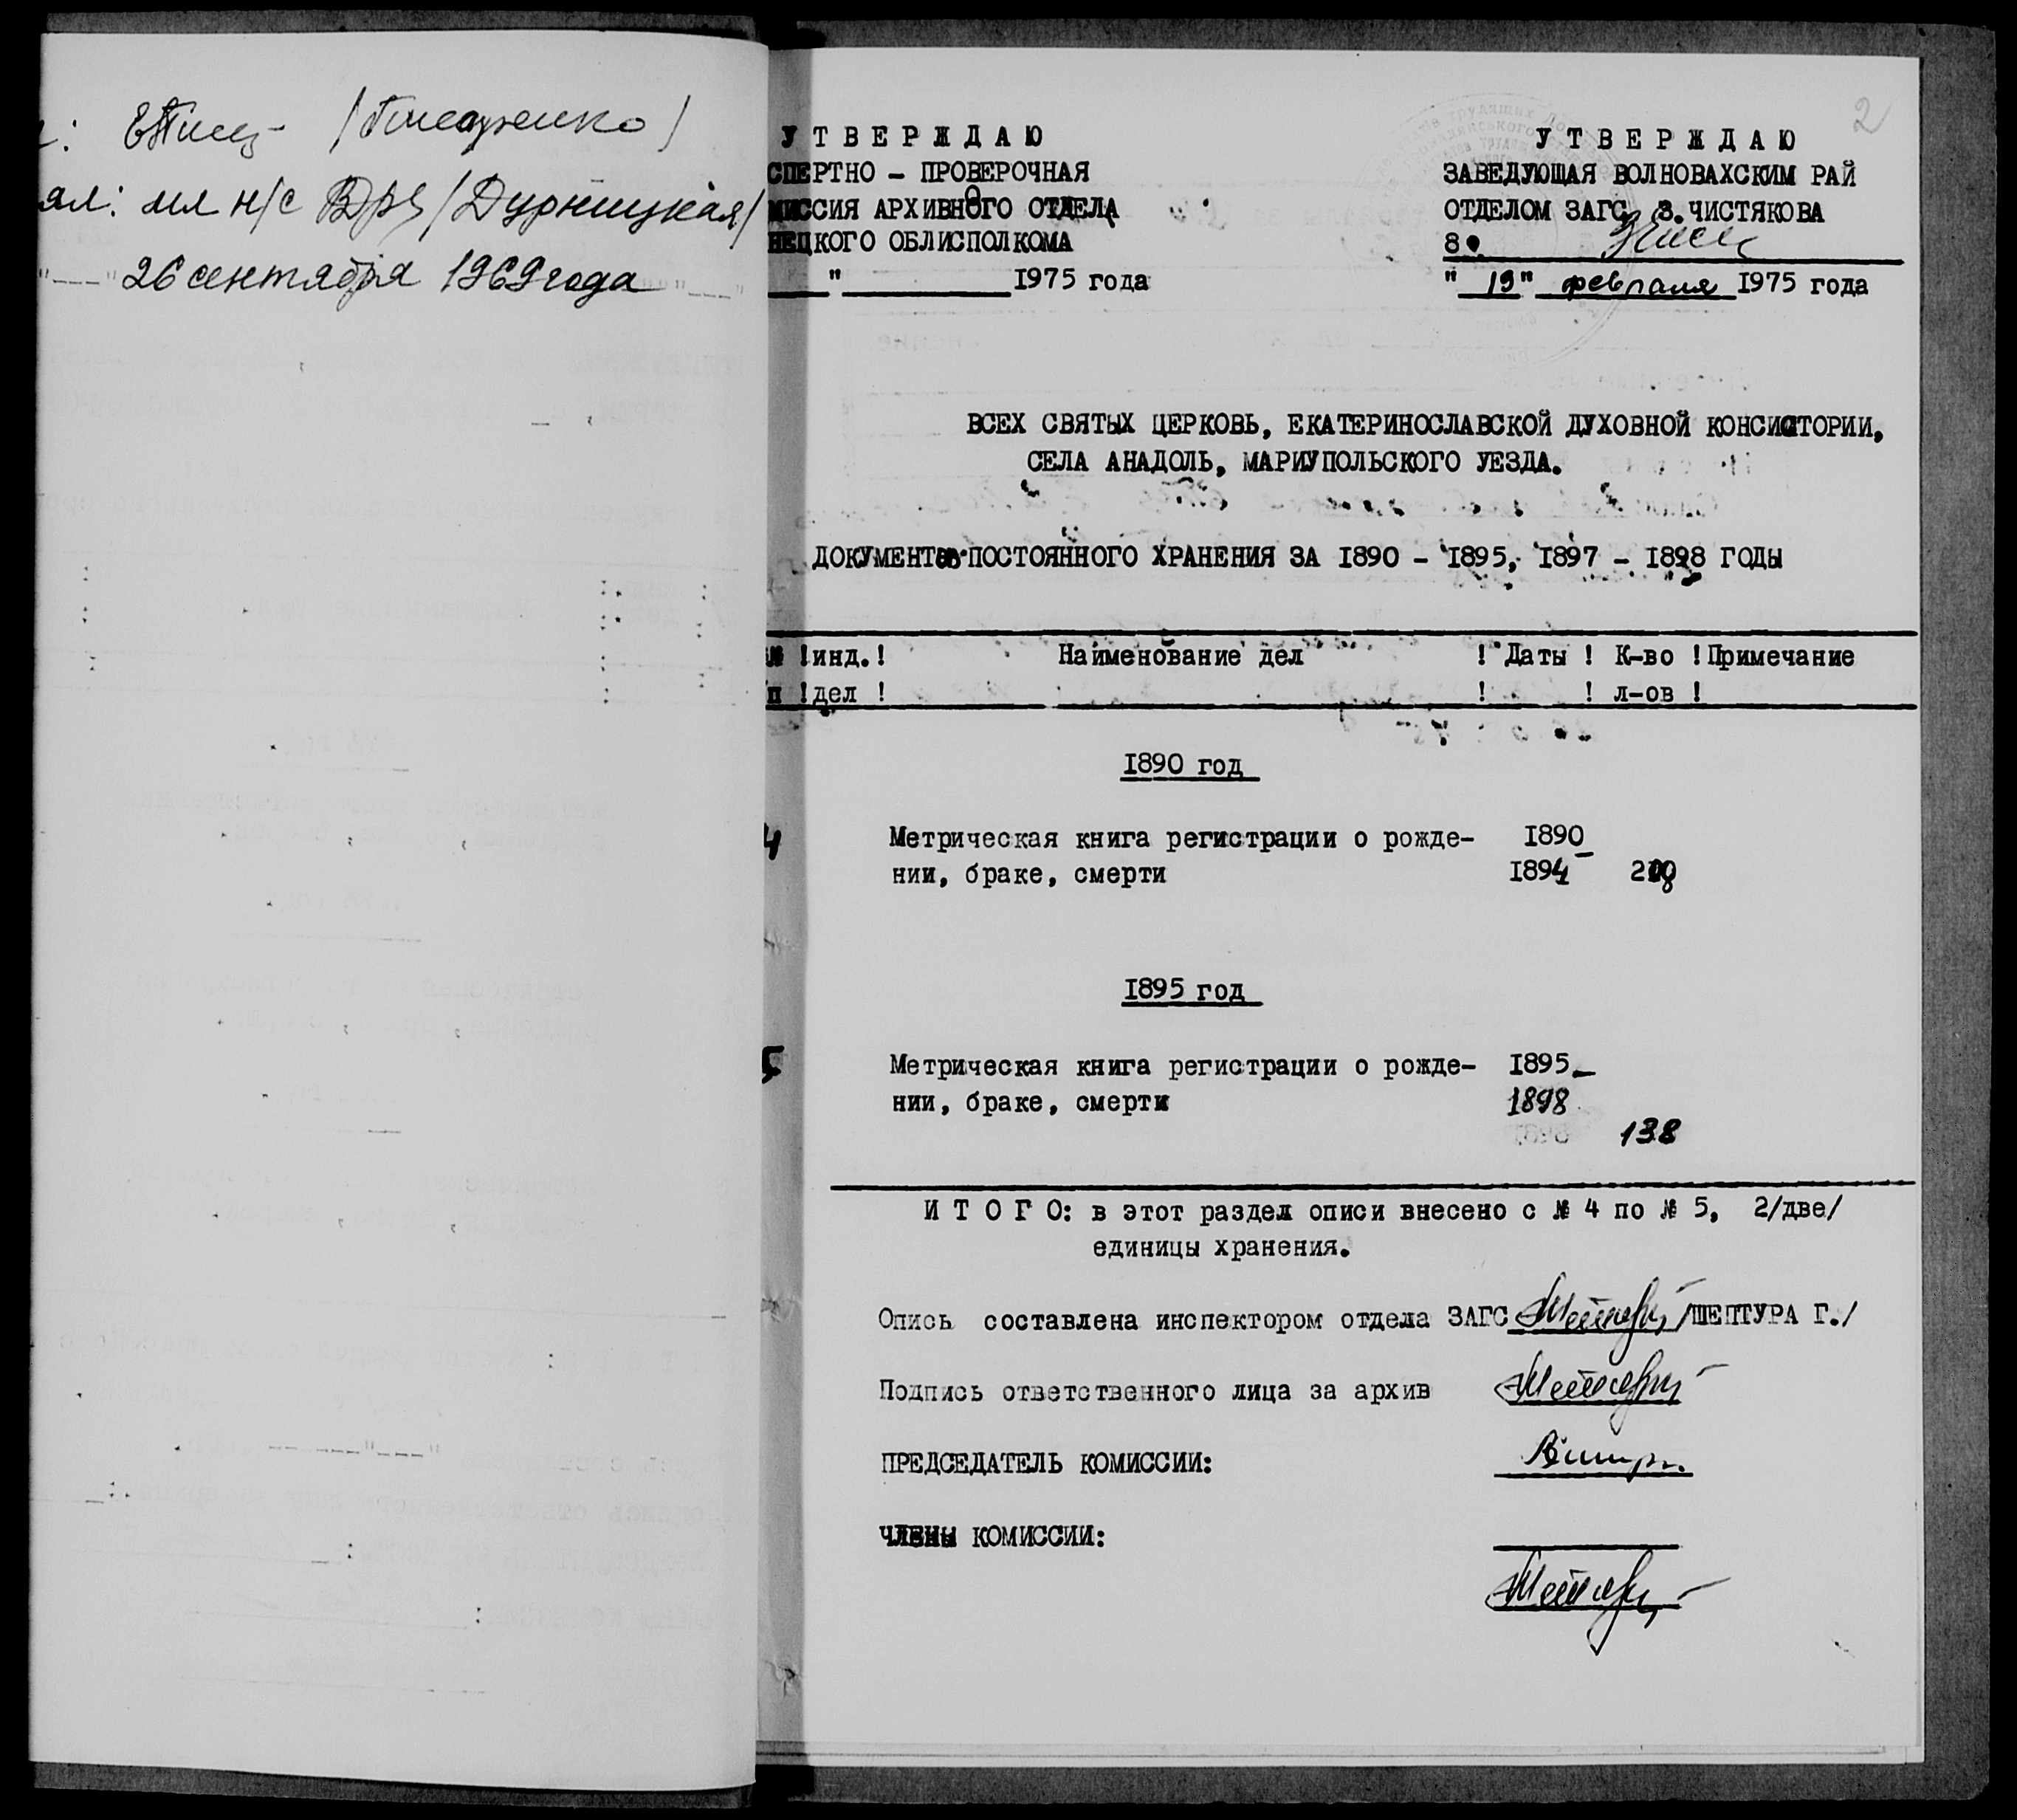 /Гнеденко/
ял: мл н/с /Дурницкая/
"---" 26 сентября 1969 года
2
УТВЕРЖДАЮ
СПЕРТНО - ПРОВЕРОЧНАЯ
МИССИЯ АРХИВНОГО ОТДЕЛА
НЕЦКОГО ОБЛИСПОЛКОМА
" 1975 года
УТВЕРЖДАЮ
ЗАВЕДУЮЩАЯ ВОЛНОВАХСКИМ РАЙ
ОТДЕЛОМ ЗАГС З.ЧИСТЯКОВА
"19" февраля 1975 года
ВСЕХ СВЯТЫХ ЦЕРКОВЬ, ЕКАТЕРИНОСЛАВСКОЙ ДУХОВНОЙ КОНСИСТОРИИ,
СЕЛА АНАДОЛЬ, МАРИУПОЛЬСКОГО УЕЗДА.
ДОКУМЕНТОВ ПОСТОЯННОГО ХРАНЕНИЯ ЗА 1890 - 1895, 1897 - 1898 ГОДЫ
№ !инд.! Наименование дел ! Даты ! К-во !Примечание
п !дел ! ! ! л-ов !
1890 год
4 Метрическая книга регистрации о рожде- 1890-
нии, браке, смерти 1894
1895 год
5 Метрическая книга регистрации о рожде- 1895-
нии, браке, смерти 1898
138
ИТОГО: в этот раздел описи внесено с № 4 по № 5, 2/две/
единицы хранения.
Опись составлена инспектором отдела ЗАГС /ШЕПТУРА Г./
Подпись ответственного лица за архив
ПРЕДСЕДАТЕЛЬ КОМИССИИ:
ЧЛЕНЫ КОМИССИИ: